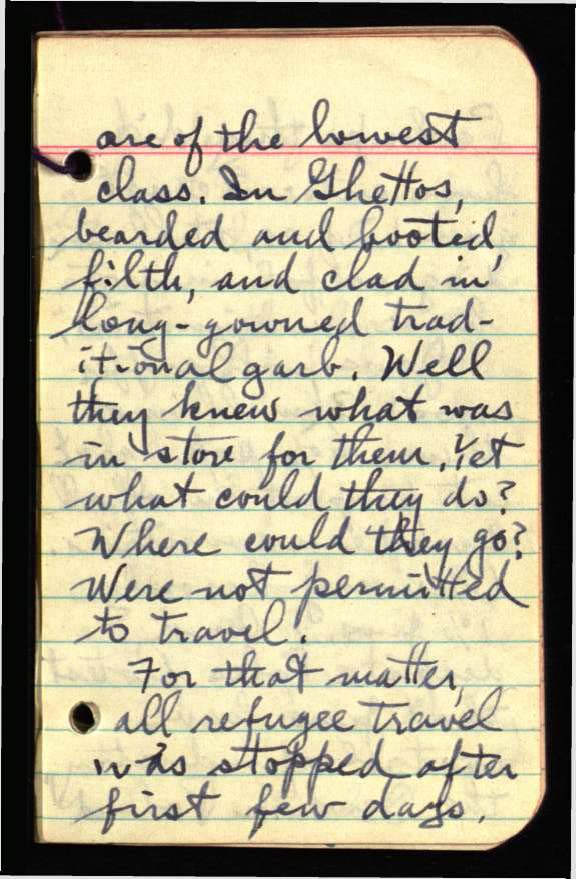 are of the lowest
class. In Ghettos,
bearded and booted,
filth, and clad in
long-gowned trad-
itional garb. Well
they knew what was
in store for them. Yet
what could they do?
Where could they go?
Were not permitted
to travel.
For that matter,
all refugee travel
was stopped after
first few days.